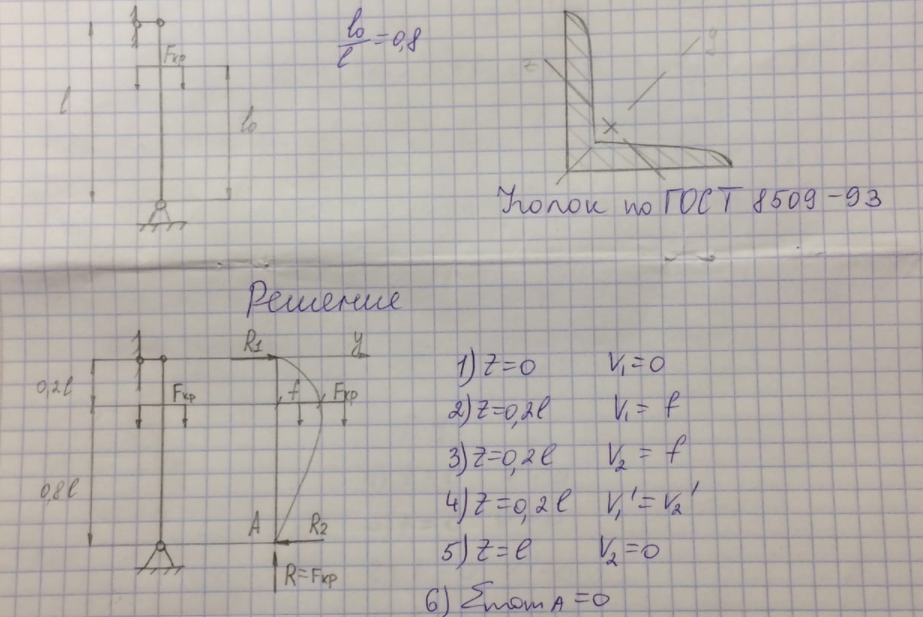 l₀/l = 0,8
Fкр
l
l₀
y
Уголок по ГОСТ 8509-93
Решение
R1
y
0,2l
Fкр
f
Fкр
0,8l
A
R2
R=Fкр
1) z=0 V₁=0
2) z=0,2l V₁= f
3) z=0,2l V₂ = f
4) z=0,2l V₁'=V₂'
5) z=l V₂=0
6) Σmom A =0